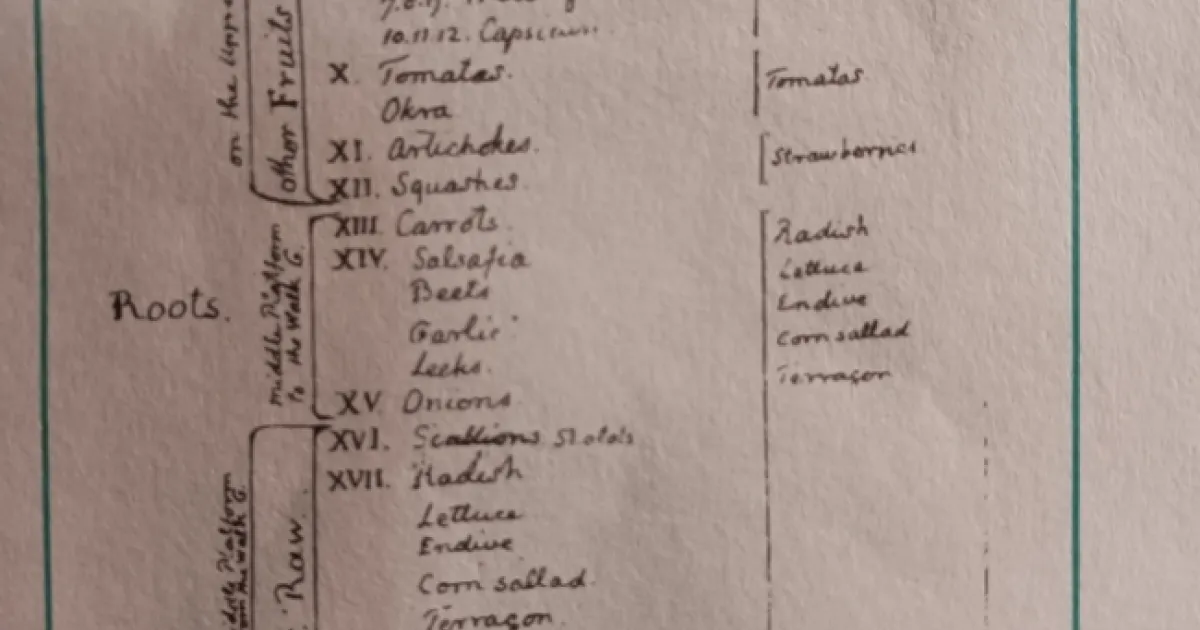 10.11.12. Capsicum.
on the
other Fruits
X. Tomatas.
Tomatas
Okra
XI. Artichokes.
Strawberries
XII. Squashes.
XIII. Carrots.
Radish
XIV. Salsafia
Lettuce
Beets
Endive
Roots.
middle Platform
to the Walk G.
Garlic
Corn sallad
Leeks.
Terragon
XV Onions
XVI. Scallions
XVII. Radish
Lettuce
Endive
Raw.
Platform
the walk
Corn sallad.
Terragon.